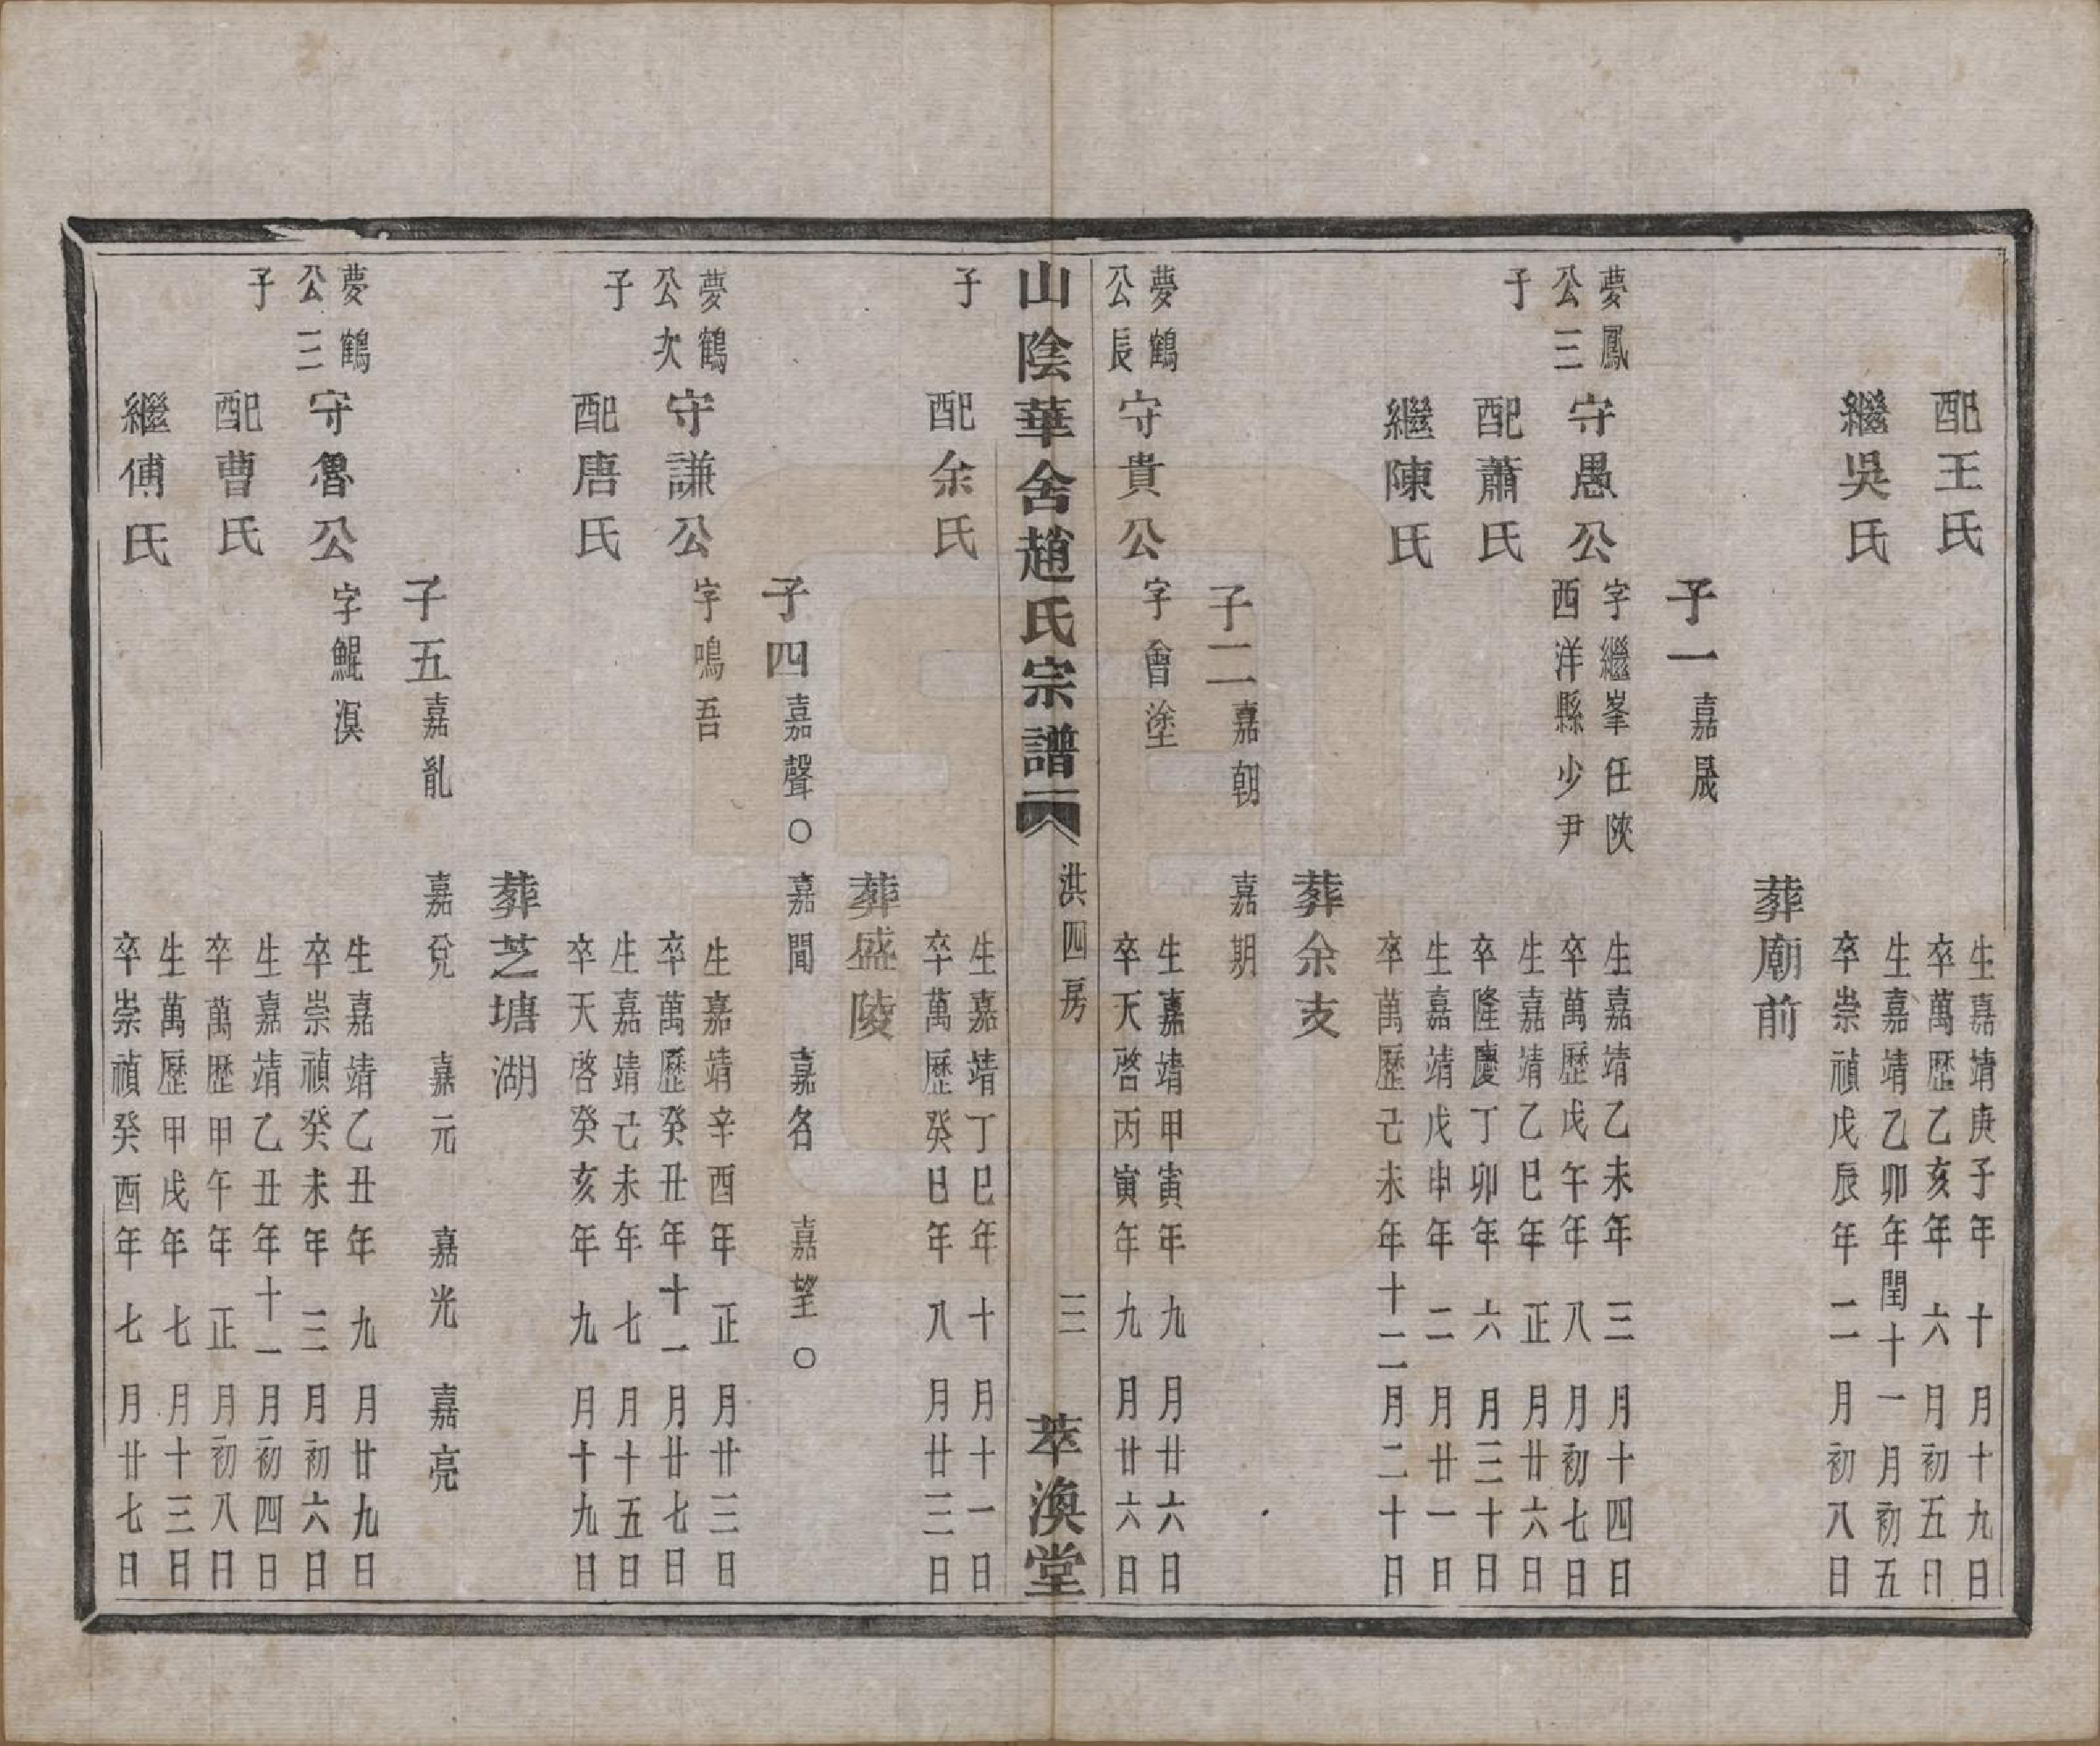 配王氏
生嘉靖庚子年十月十九日
卒萬歷乙亥年六月初五日
繼吳氏
生嘉靖乙卯年閏十一月初五
卒崇禎戊辰年二月初八日
葬廟前
子一嘉晟
夢鳳
公三
子
守愚公
字繼峯任陝
西洋縣少尹
生嘉靖乙未年三月十四日
卒萬歷戊午年八月初七日
配蕭氏
生嘉靖乙巳年正月廿六日
卒隆慶丁卯年六月三十日
繼陳氏
生嘉靖戊申年二月廿一日
卒萬歷己未年十二月二十日
葬余支
子二嘉朝 嘉期
夢鶴
公長
守貴公
字會塗
生嘉靖甲寅年九月廿六日
卒天啓丙寅年九月廿六日
山陰華舍趙氏宗譜 洪四房 三 萃渙堂
子
配余氏
生嘉靖丁巳年十月十一日
卒萬歷癸巳年八月廿三日
葬盛陵
子四嘉聲○嘉聞 嘉名 嘉望○
夢鶴
公次
子
守謙公
字鳴吾
生嘉靖辛酉年正月廿三日
卒萬歷癸丑年十一月廿七日
配唐氏
生嘉靖己未年七月十五日
卒天啓癸亥年九月十九日
葬芝塘湖
子五嘉胤 嘉兌 嘉元 嘉光 嘉亮
夢鶴
公三
子
守魯公
字鯤溟
生嘉靖乙丑年九月廿九日
卒崇禎癸未年三月初六日
配曹氏
生嘉靖乙丑年十一月初四日
卒萬歷甲午年正月初八日
繼傅氏
生萬歷甲戌年七月十三日
卒崇禎癸酉年七月廿七日